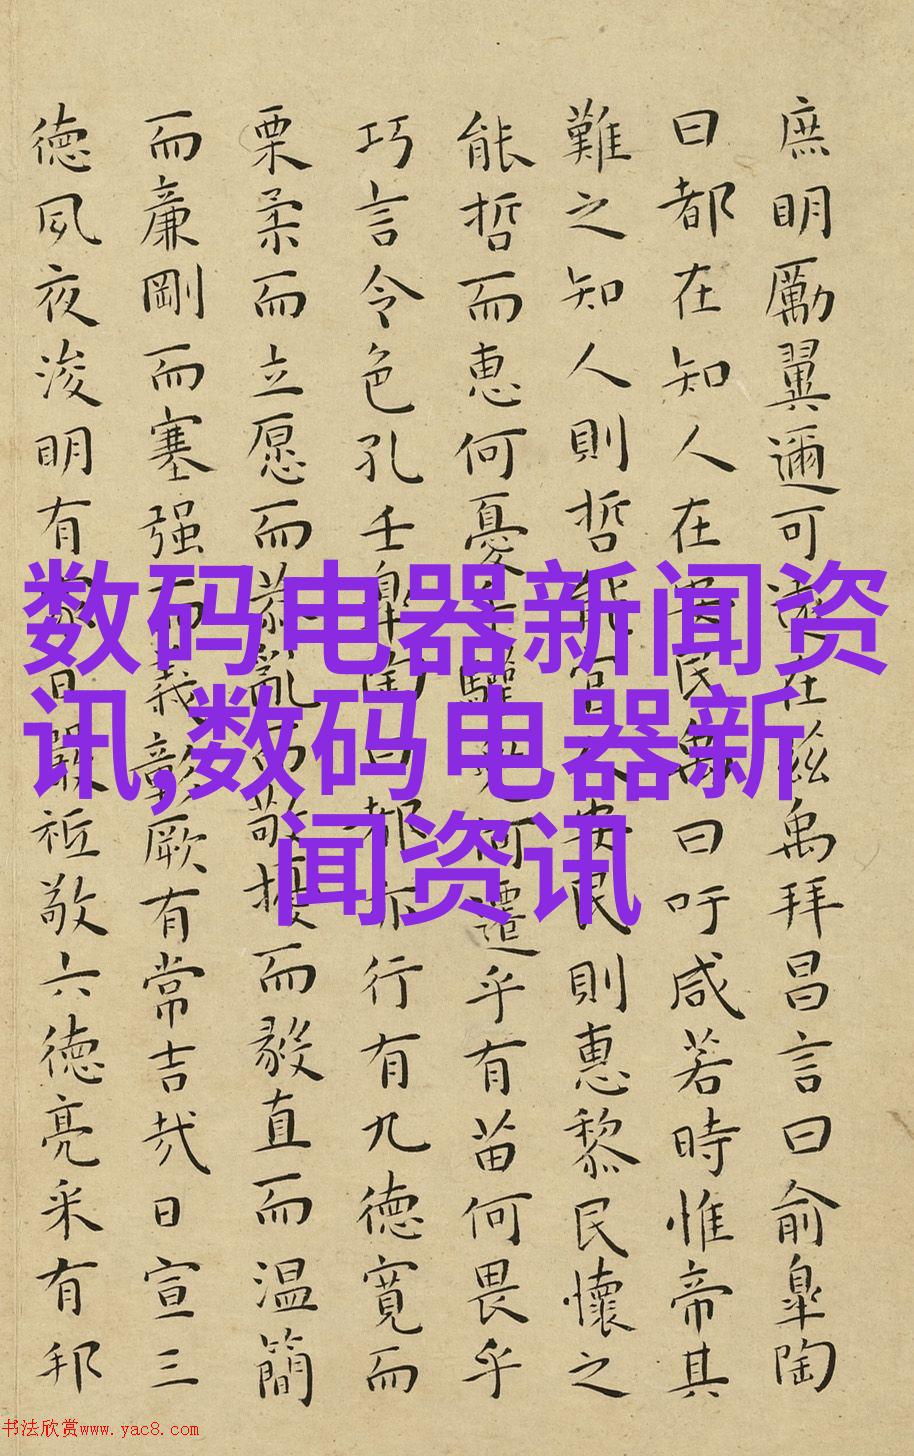 庶明勵翼邇可遠在茲禹拜昌言曰俞皐陶
曰都在知人在安民禹曰吁咸若時惟帝其
難之知人則哲能官人安民則惠黎民懷之
能哲而惠何憂乎驩兜何遷乎有苗何畏乎
巧言令色孔壬皐陶曰都亦行有九德寬而
栗柔而立愿而恭亂而敬擾而毅直而温簡
而廉剛而塞强而義彰厥有常吉哉日宣三
德夙夜浚明有家日嚴祗敬六德亮采有邦
数码电器新闻资
讯,数码电器新
闻资讯
书法欣赏www.yac8.com